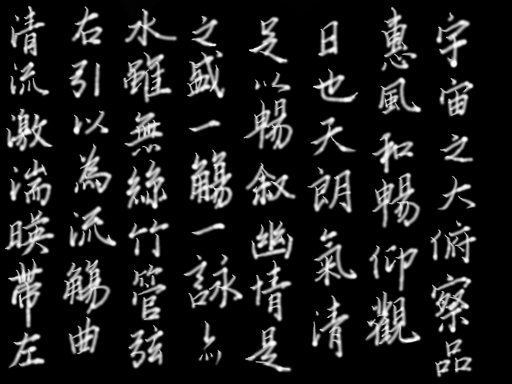 清流激湍暎帶左
右引以為流觴曲
水雖無絲竹管弦
之盛一觴一詠亦
足以暢叙幽情是
日也天朗氣清
惠風和暢仰觀
宇宙之大俯察品